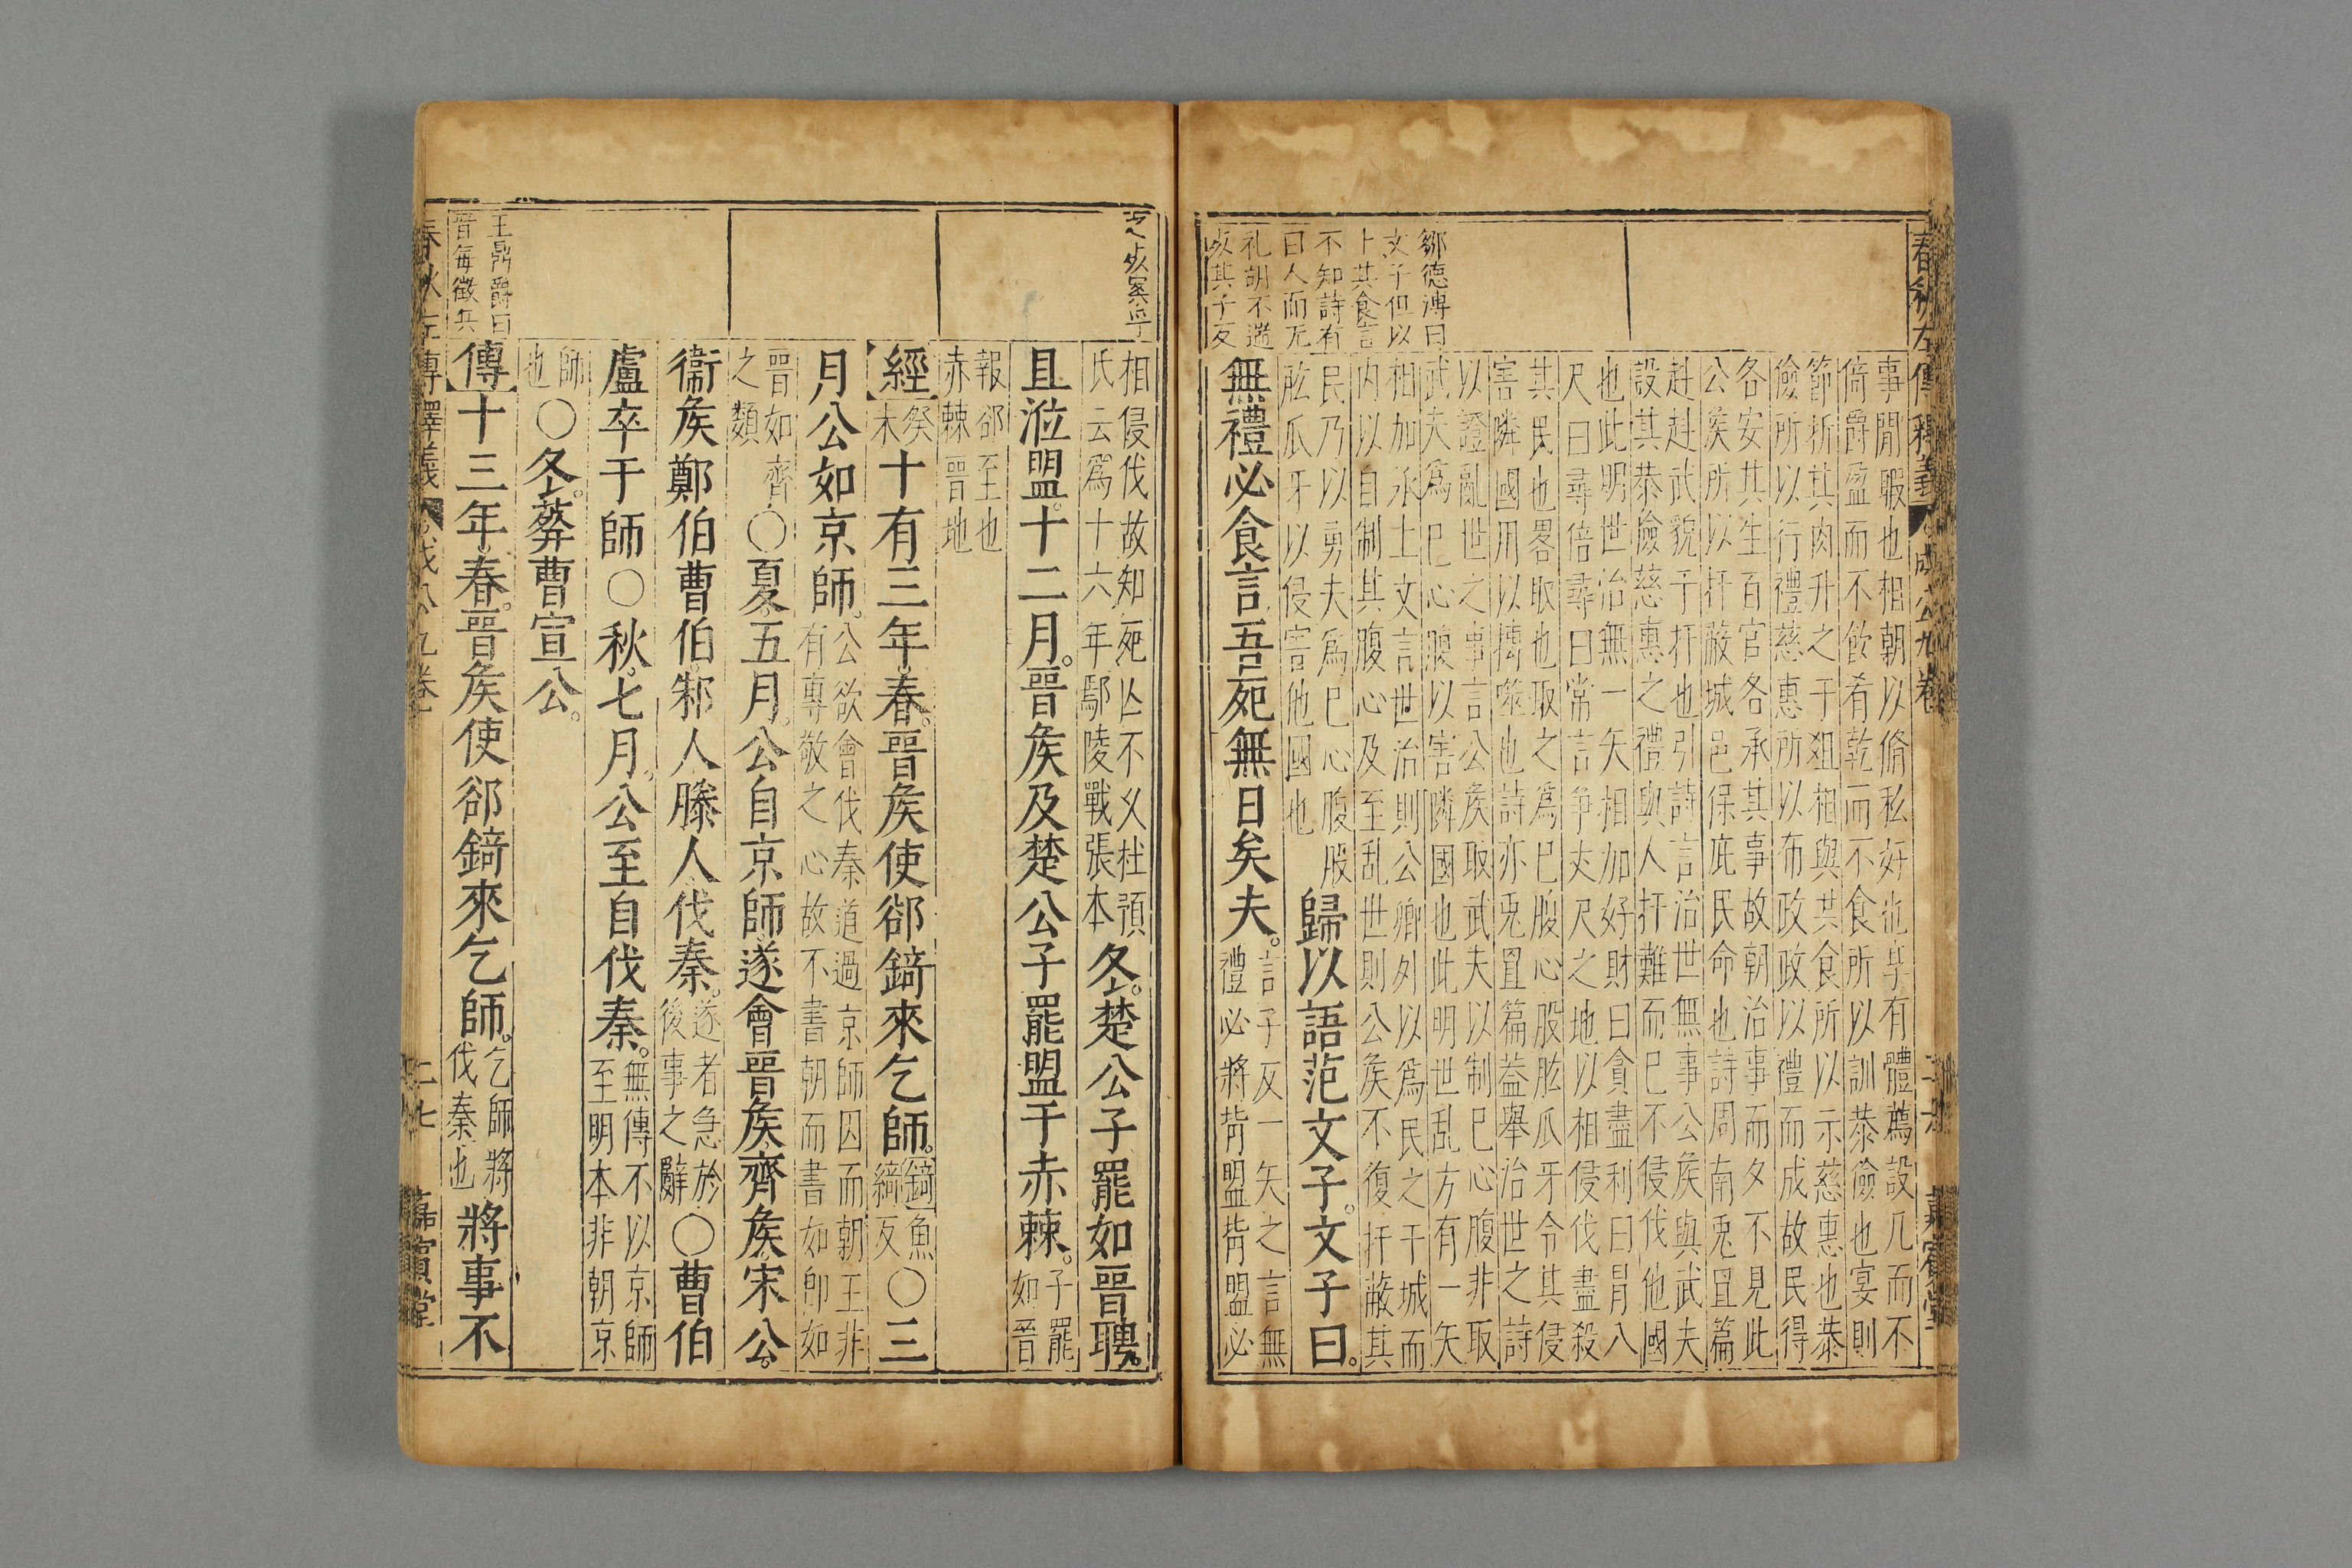 春秋左傳釋義 成公九卷 二十六 嘉賓堂
鄒德溥曰
文子但以
卜其食言
不知詩有
曰人而无
礼胡不遄
死其子反
事閒暇也相朝以脩私好也享有體薦設几而不
倚爵盈而不飲肴乾而不食所以訓恭儉也宴則
節折其肉升之于俎相與共食所以示慈惠也恭
儉所以行禮慈惠所以布政政以禮而成故民得
各安其生百官各承其事故朝治事而夕不見此
公矦所以扞蔽城邑保庇民命也詩周南兎罝篇
赳赳武貌于扞也引詩言治世無事公矦與武夫
設其恭儉慈惠之禮與人扞難而已不侵伐他國
也此明世治無一矢相加好財曰貪盡利曰冒八
尺曰尋倍尋曰常言争丈尺之地以相侵伐盡殺
其民也畧取也取之爲已腹心股肱爪牙令其侵
害隣國用以搏噬也詩亦兎罝篇葢舉治世之詩
以證亂世之事言公矦取武夫以制已心腹非取
武夫爲已心腹以害隣國也此明世乱方有一矢
相加氶上文言世治則公卿外以爲民之干城而
内以自制其腹心及至乱世則公矦不復扞蔽其
民乃以勇夫爲已心腹股
肱爪牙以侵害他國也
歸以語范文子。文子曰。
無禮必食言吾死無日矣夫。
言子反一矢之言無
禮必將背盟背盟必
相侵伐故知死亾不乆杜預
氏云爲十六年鄢陵戰張本
冬。楚公子罷如晉聘。
且涖盟。十二月。晉矦及楚公子罷盟于赤棘。
子罷
如晉
報郤至也
赤棘晉地
經
癸
未
十有三年春。晉矦使郤錡來乞師。
錡魚
綺反
〇三
月公如京師。
公欲會伐秦道過京師因而朝王非
有專敬之心故不書朝而書如即如
晉如齊
之類
〇夏。五月。公自京師遂會晉矦齊矦宋公。
衞矦鄭伯曹伯邾人滕人伐秦。
遂者急於
後事之辭
〇曹伯
盧卒于師〇秋。七月。公至自伐秦。
無傳不以京師
至明本非朝京
師
也
〇冬。葬曹宣公。
王鼎爵曰
晉每徵兵
傳十三年春。晉矦使郤錡來乞師。
乞師將
伐秦也
將事不
春秋左傳釋義 成公九卷 二十七 嘉賓堂